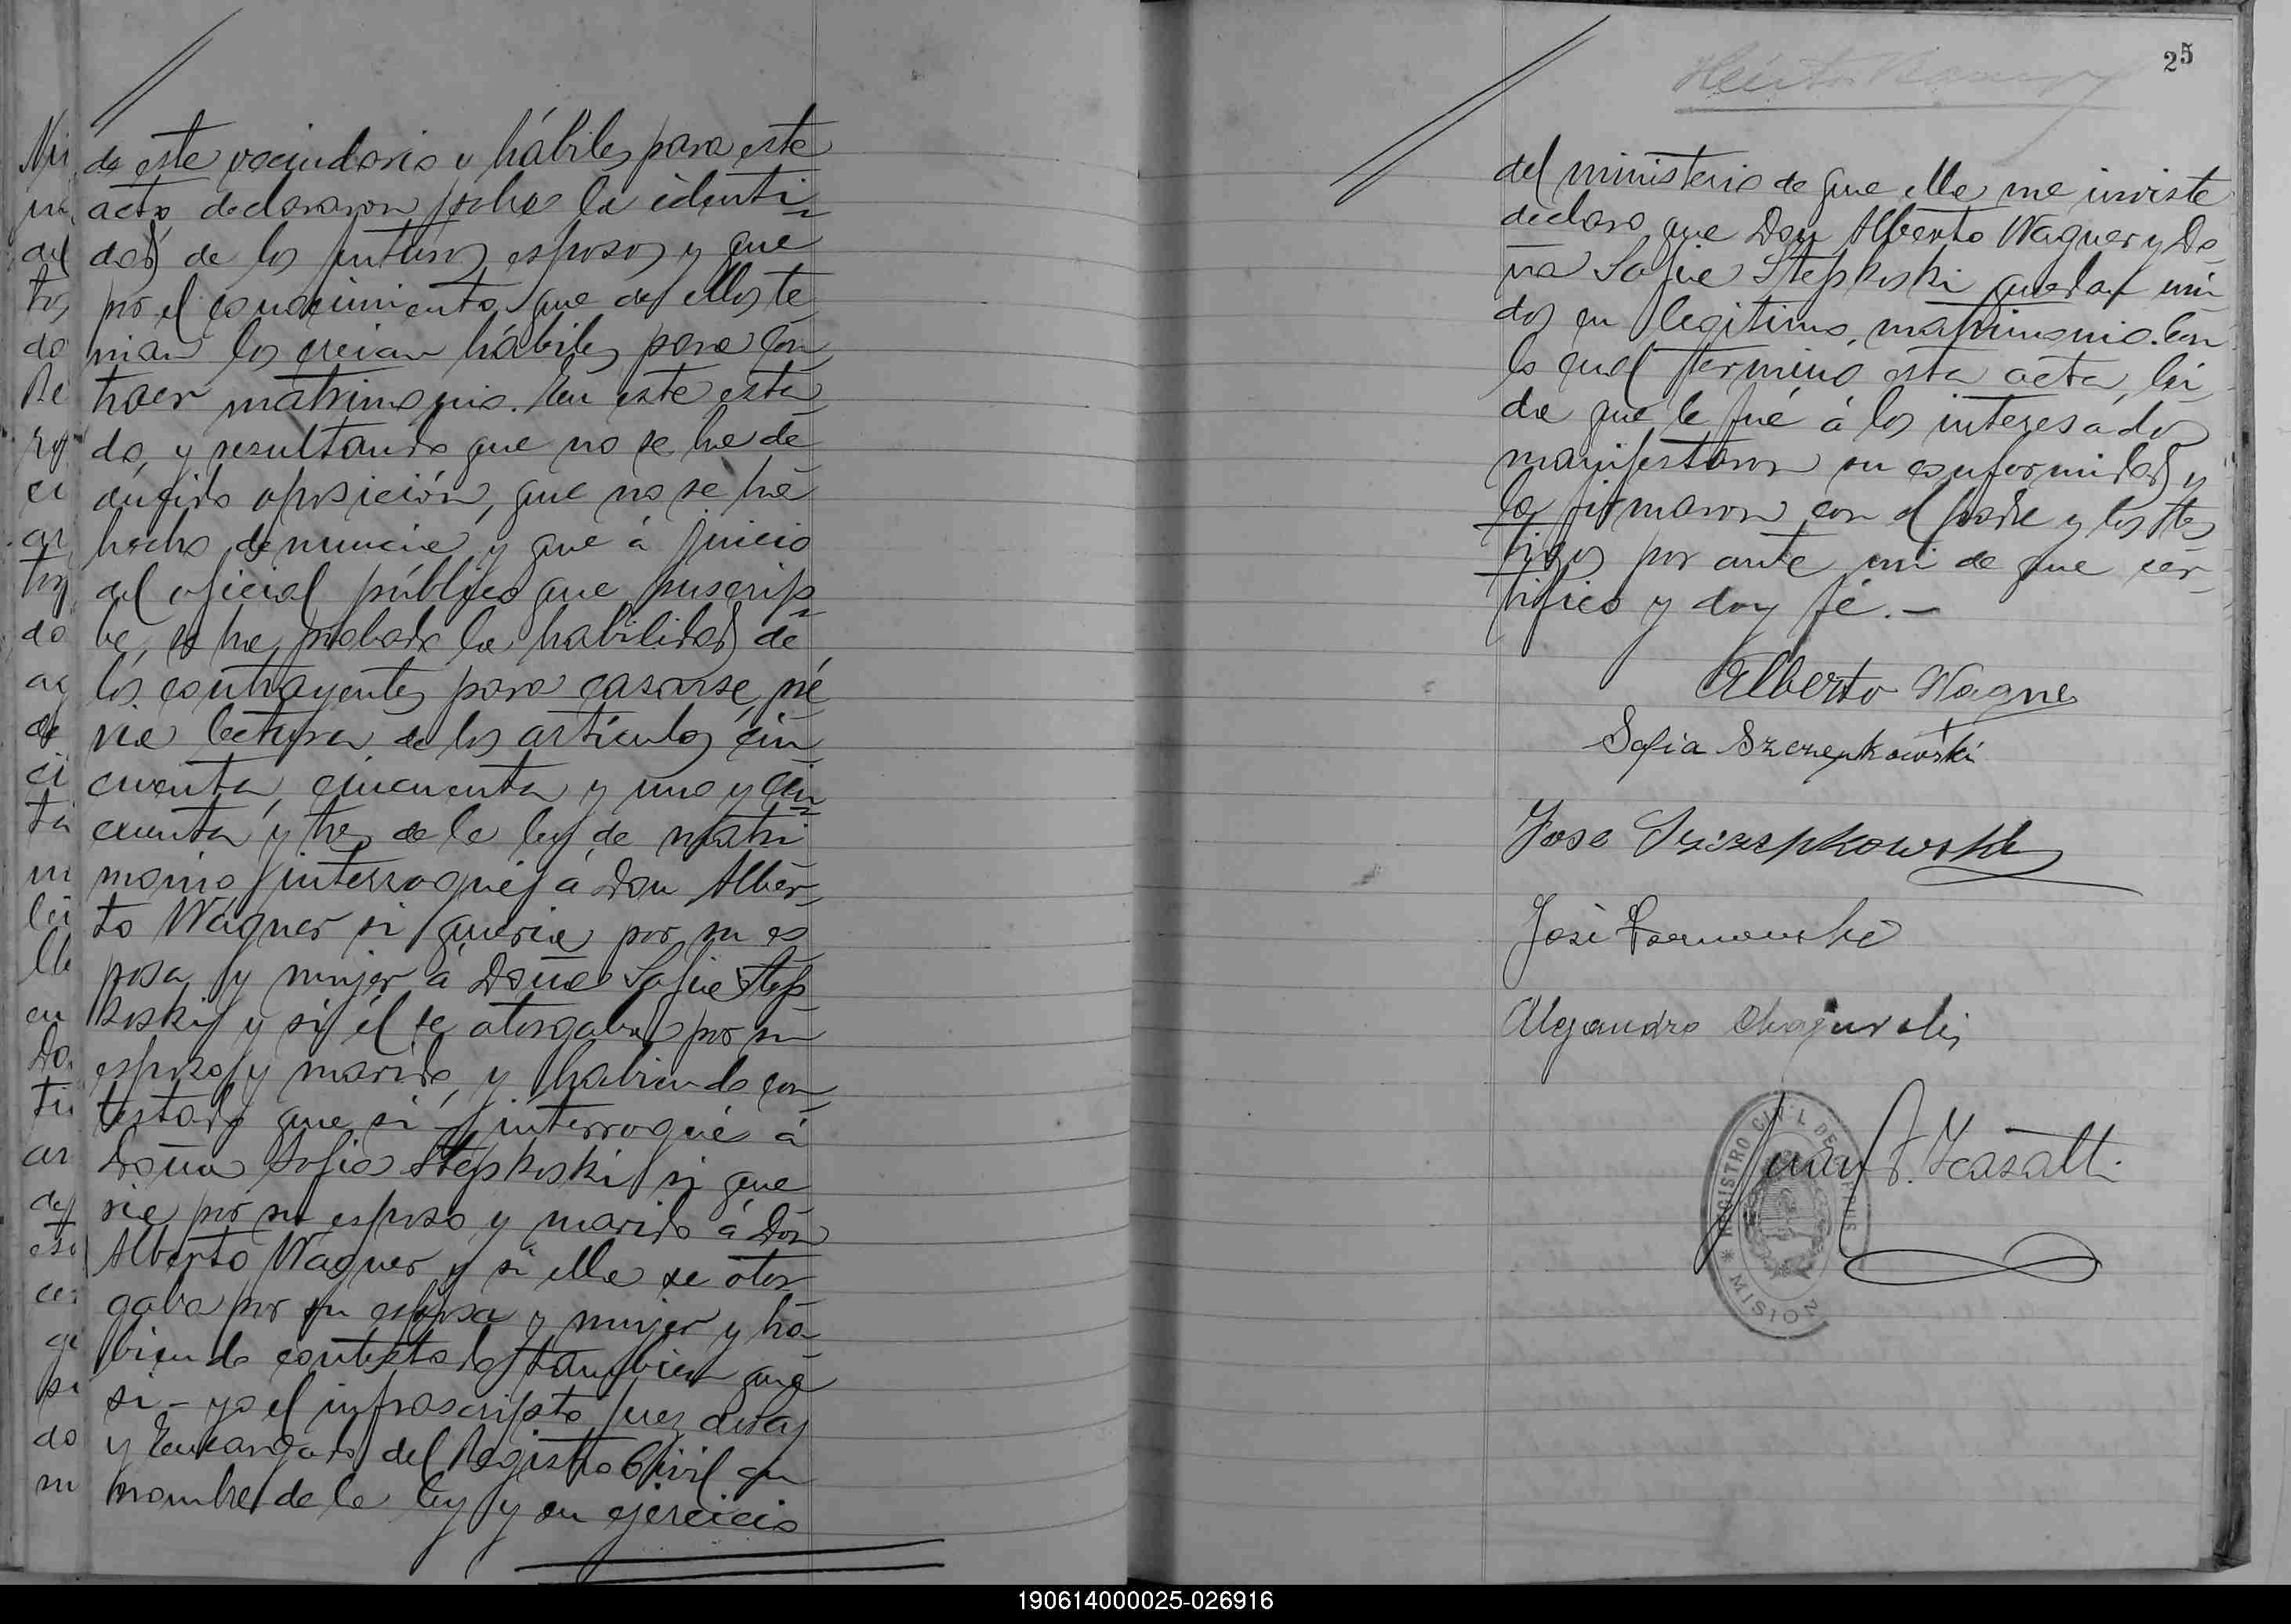 de este vecindario y hábiles para este
acto declararon sobre la identi=
dad de los futuros esposos y que
por el conocimiento que de ellos te
nian los creian hábiles para con
traer matrimonio. En este esta
do, y resultando que no se ha de
ducido oposición, que no se ha
hecho denuncia, y que á juicio
del oficial público que suscrip=
be, se ha probado la habilidad de
los contrayentes para casarse, pré
via lectura de los artículos cin
cuenta, cincuenta y uno y cin=
cuenta y tres de la ley de matri
monio interrogué á Don Alber=
to Wagner si queria por su es
posa y mujer á Doña Sofia Step
koski y si él se otorgaba por su
esposo y marido, y habiendo con
testado que si – interrogué á
Doña Sofia Stepkoski si que
ria por su esposo y marido á Don
Alberto Wagner y si ella se otor
gaba por su esposa y mujer y ha
biendo contestado tambien que
si – yo el infrascripto Juez de Paz
y Encargado del Registro Civil en
nombre de la ley y en ejercicio
25
del ministerio de que ella me inviste
declaro que Don Alberto Wagner y Do
ña Sofia Stepkoski quedan uni
dos en legitimo matrimonio. Con
lo cual termino esta acta, lei
da que le fué á los interesados
manifestaron su conformidad y
la firmaron con el padre y los tes
tigos por ante mi de que cer=
tifico y doy fé. –
Alberto Wagner
Sofia Szczepkowski
Jose Szczepkowski
José
Alejandro
Juan F. Icasatti
REGISTRO CIVIL DE
MISION
190614000025-026916